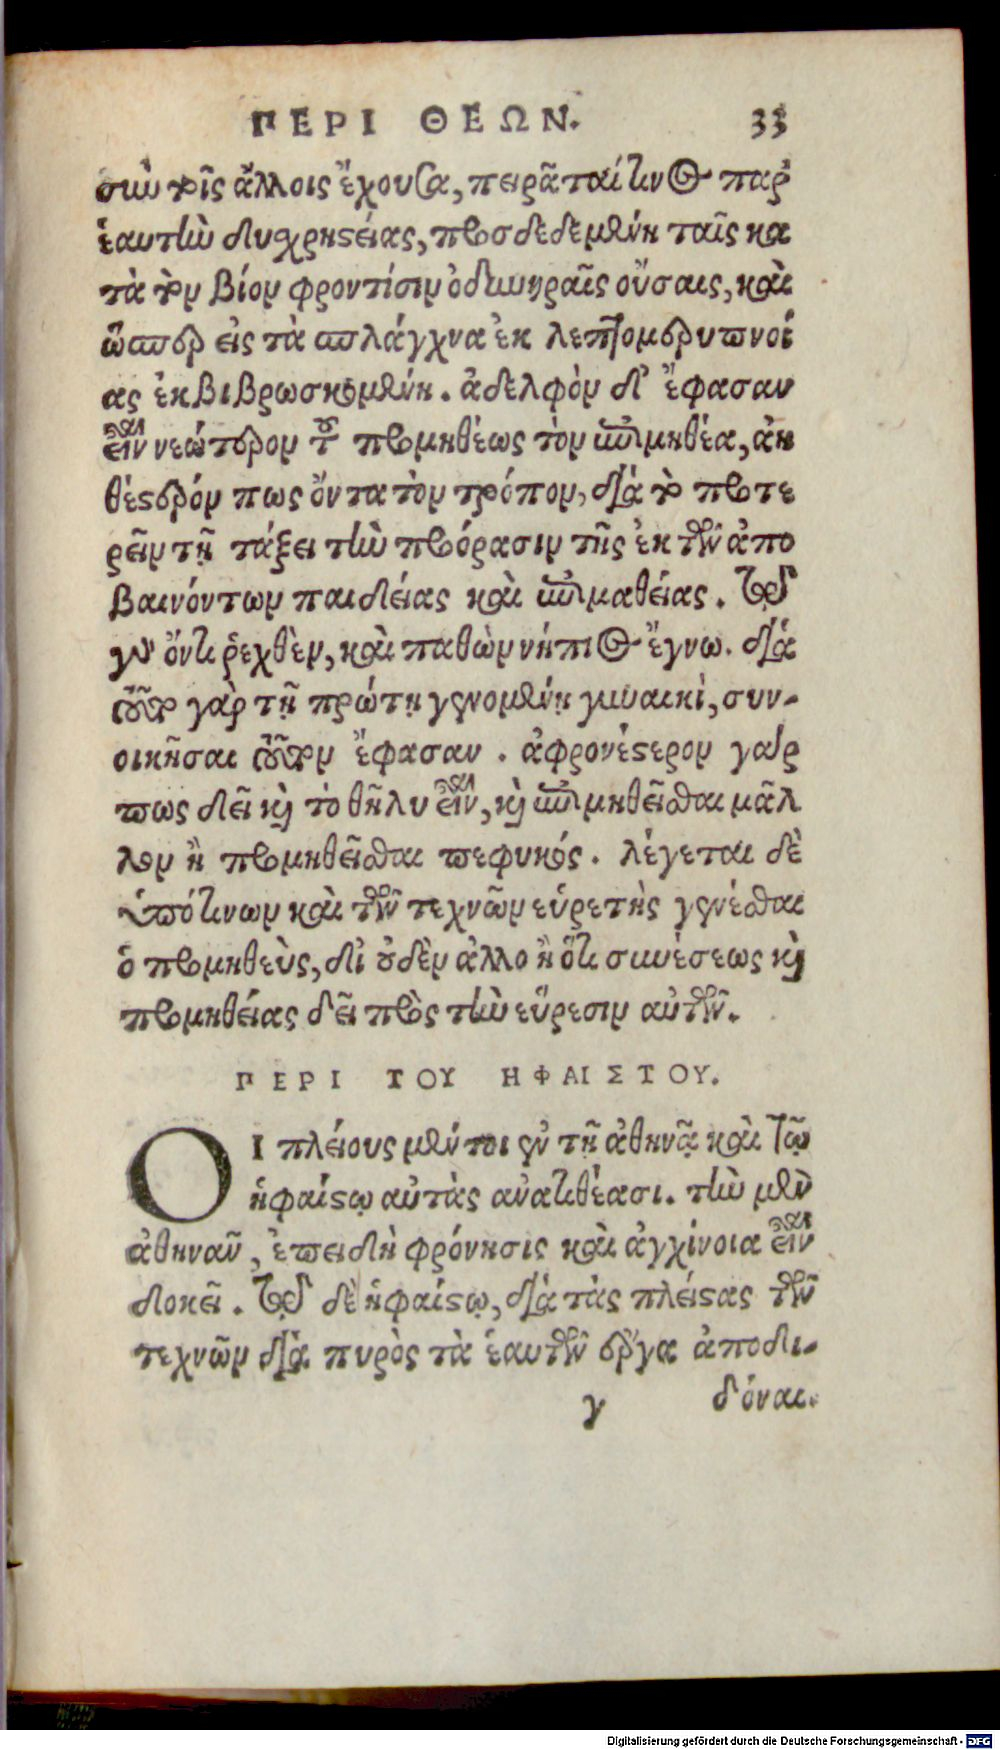 ΠΕΡΙ ΘΕΩΝ. 33
σιὺ τοῖς ἄλλοις ἔχουσα, πειρᾶται τινος παρ'
ἑαυτὴν δυχρηστείας, προσδεδεμένη ταῖς κα
τὰ τὸν βίον φροντίσιν ὀδυνηραῖς οὔσαις, καὶ
ὥσπερ εἰς τὰ σπλάγχνα ἐκ λεπτομερυπνοί
ας ἐκβιβρωσκομένη. ἀδελφὸν δ' ἔφασαν
εἶναι νεώτερον τοῦ προμηθέως τὸν ἐπιμηθέα, ἀη
θέστερόν πως ὄντα τὸν τρόπον, διὰ τὸ προτε
ρεῖν τῇ τάξει τὴν προόρασιν τῆς ἐκ τῶν ἀπο
βαινόντων παιδείας καὶ ἐπιμαθείας. τῷ
γὰρ ὄντι ῥεχθὲν, καὶ παθὼν νήπιος ἔγνω. διὰ
τοῦτο γὰρ τῇ πρώτῃ γενομένῃ γυναικὶ, συν-
οικῆσαι τοῦτον ἔφασαν. ἀφρονέστερον γάρ
πως δεῖ καὶ τὸ θῆλυ εἶναι, καὶ ἐπιμηθεῖσθαι μᾶλ
λον ἢ προμηθεῖσθαι πεφυκός. λέγεται δὲ
ὑπό τινων καὶ τῶν τεχνῶν εὑρετὴς γενέσθαι
ὁ προμηθεὺς, δι' οὐδὲν ἄλλο ἢ ὅτι συνέσεως καὶ
προμηθείας δεῖ πρὸς τὴν εὕρεσιν αὐτῶν.
ΠΕΡΙ ΤΟΥ ΗΦΑΙΣΤΟΥ.
ΟΙ πλείους μέντοι ἐν τῇ ἀθηνᾷ καὶ τῷ
ἡφαίστῳ αὐτὰς ἀνατιθέασι. τὴν μὲν
ἀθηνᾶν, ἐπειδὴ φρόνησις καὶ ἀγχίνοια εἶναι
δοκεῖ. τῷ δὲ ἡφαίστῳ, διὰ τὰς πλείστας τῶν
τεχνῶν διὰ πυρὸς τὰ ἑαυτῶν ἔργα ἀποδι-
γ δόναι.
Digitalisierung gefördert durch die Deutsche Forschungsgemeinschaft - DFG